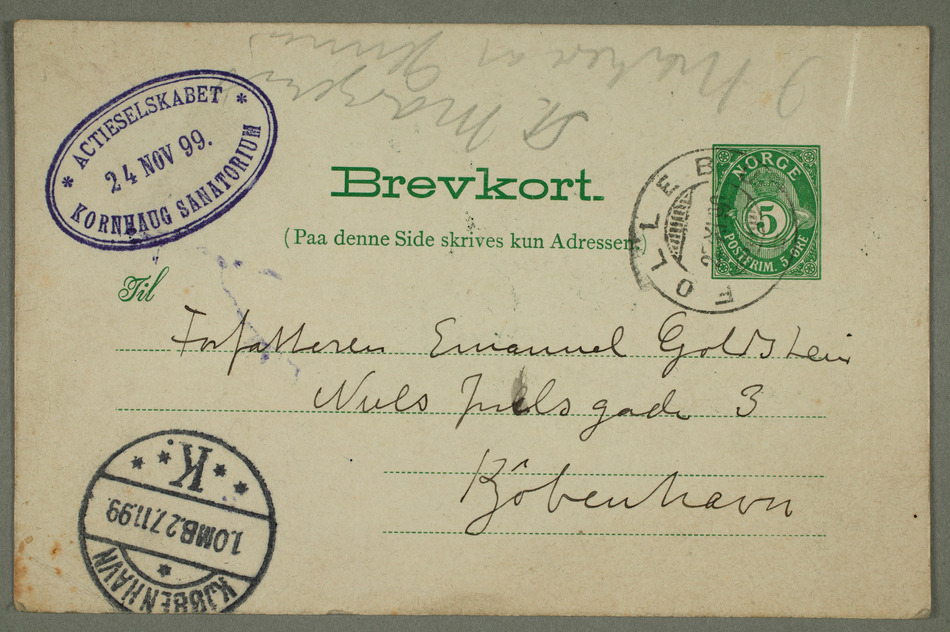 * ACTIESELSKABET *
24 NOV 99.
KORNHAUG SANATORIUM
Brevkort.
(Paa denne Side skrives kun Adressen)
FOLLEB
NORGE
5
POSTFRIM. 5 ØRE
Til
Forfatteren Emanuel Goldstein
Niels Juels gade 3
Köbenhavn
K.
1.OMB.27.11.99
KJØBENHAVN